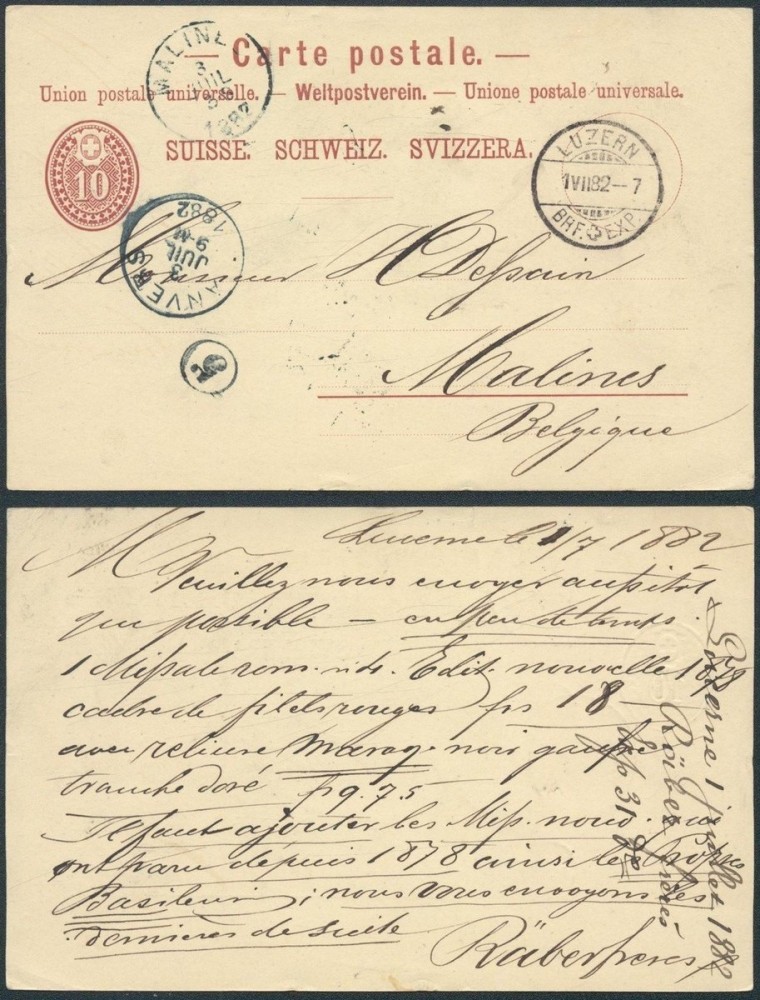 — Carte postale. —
Union postale universelle. — Weltpostverein. — Unione postale universale.
SUISSE. SCHWEIZ. SVIZZERA.
10
MALINES
3
JUIL
1882
LUZERN
1 VII 82 – 7
BRF. EXP.
ANVERS
3
JUIL
9-M
1882
Monsieur H Dessain
Malines
Belgique
Lucerne le 1/7 1882
M
Veuillez nous envoyer aussitôt
que possible — en peu de temps.
1 Missale rom. in 4. Edit. nouvelle 1878
cadre de filets rouges frs 18
avec reliure maroq. noir gaufré
tranche doré frs 9.75
Il faut ajouter les Miss. nouv. qui
ont paru depuis 1878 ainsi le Propre
Basileen; nous vous envoyons les
dernières de suite
Räber frères
Lucerne 1 Juillet 1882
Räber frères
31